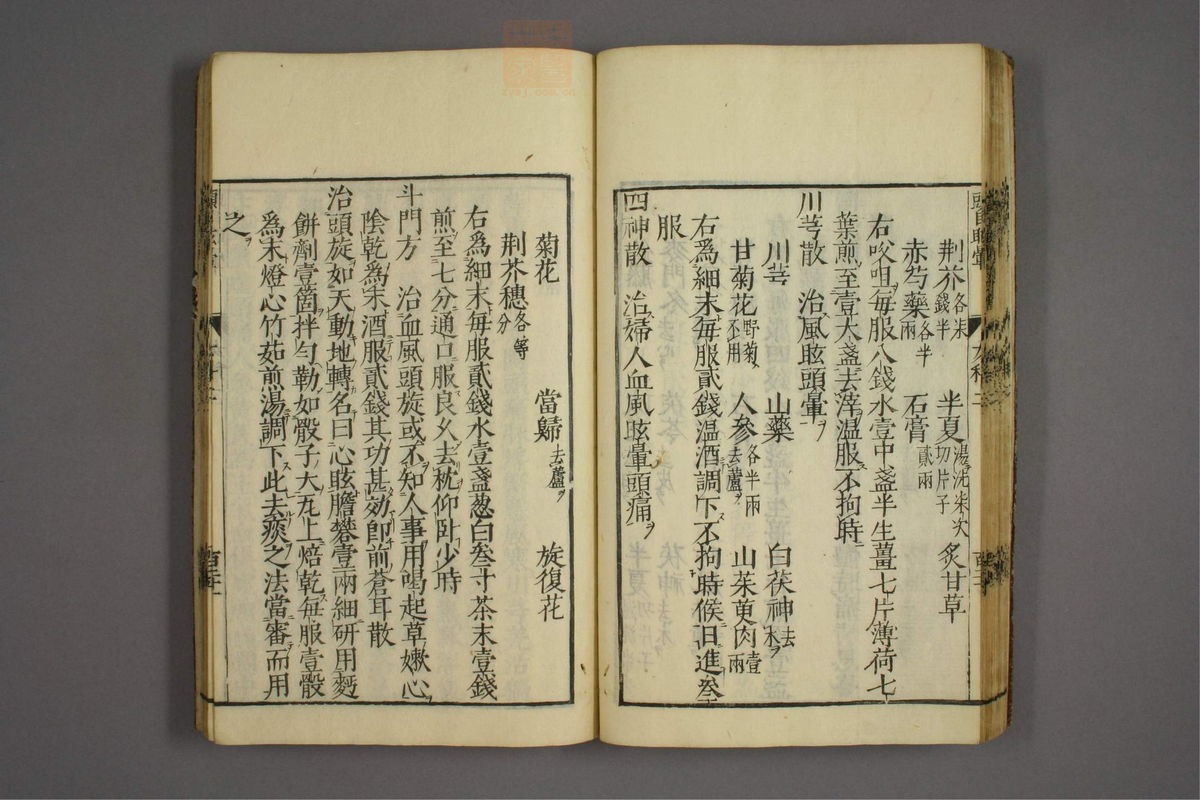 荆芥各柒錢半　半夏湯洗柒次切片子　炙甘草
赤芍藥各半兩　石膏貳兩
右㕮咀每服八錢水壹中盞半生薑七片薄荷七
葉煎至壹大盞去滓温服不拘時
川芎散　治風眩頭暈
川芎　山藥　白茯神去木
甘菊花野菊不用　人參去蘆各半兩　山茱萸肉壹兩
右爲細末每服貳錢温酒調下不拘時候日進叁
服
四神散　治婦人血風眩暈頭痛
菊花　當歸去蘆　旋復花
荆芥穗各等分
右爲細末每服貳錢水壹盞葱白叁寸茶末壹錢
煎至七分通口服良久去枕仰臥少時
斗門方　治血風頭旋或不知人事用喝起草嫩心
陰乾爲末酒服貳錢其功甚効即前蒼耳散
治頭旋如天動地轉名曰心眩膽礬壹兩細研用麪
餅劑壹箇拌勻勒如骰子大瓦上焙乾每服壹骰
爲末燈心竹茹煎湯調下此去痰之法當審而用
之